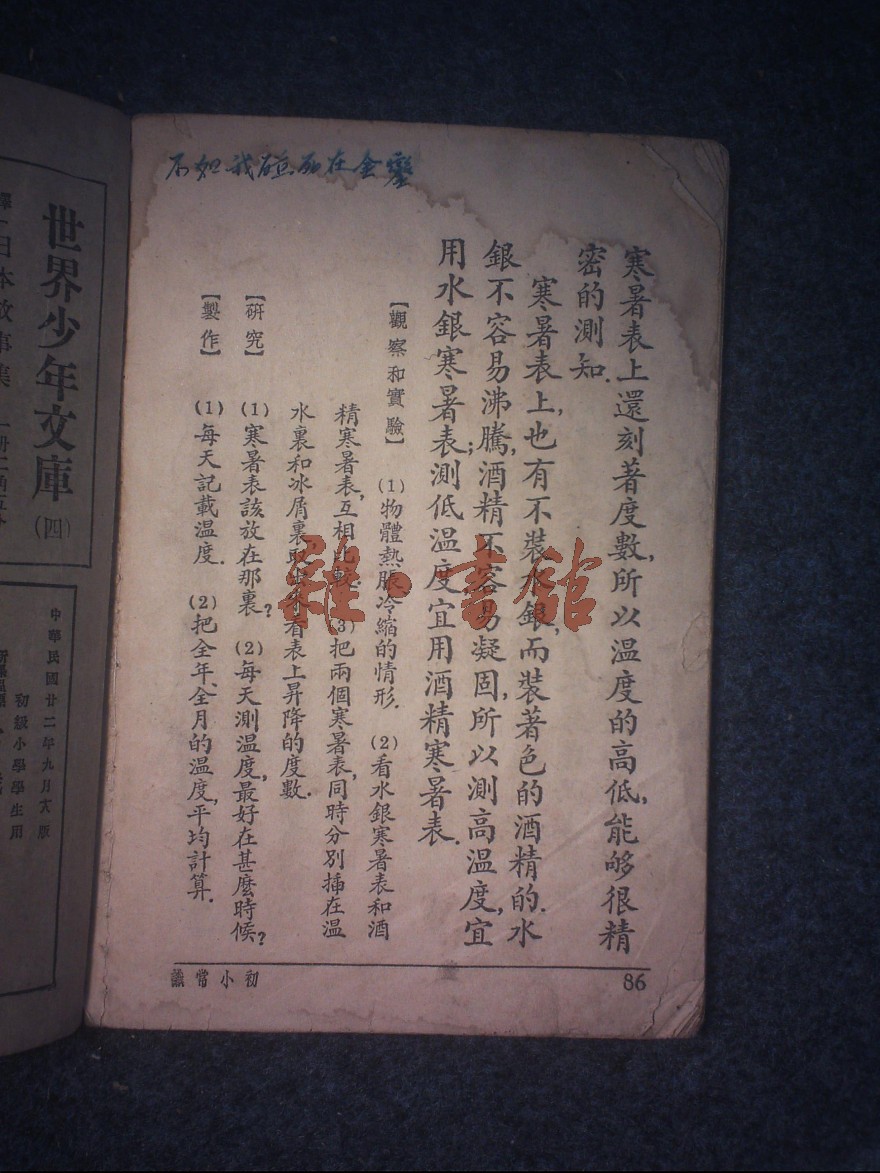 不如我碰死在金鑾
寒暑表上還刻著度數，所以溫度的高低，能够很精
密的測知．
寒暑表上，也有不裝水銀，而裝著色的酒精的．水
銀不容易沸騰；酒精不容易凝固，所以測高溫度，宜
用水銀寒暑表測低溫度宜用酒精寒暑表．
【觀察和實驗】 (1)物體熱脹冷縮的情形． (2)看水銀寒暑表和酒
精寒暑表，互相比較 (3)把兩個寒暑表，同時分別插在溫
水裏和冰屑裏，取出來看表上昇降的度數．
【研究】 (1)寒暑表該放在那裏？ (2)每天測溫度，最好在甚麼時候？
【製作】 (1)每天記載溫度． (2)把全年、全月的溫度，平均計算．
初小常識
86
雜·書館
世界少年文庫(四)
日本故事集
中華民國廿二年九月
初級小學學生用